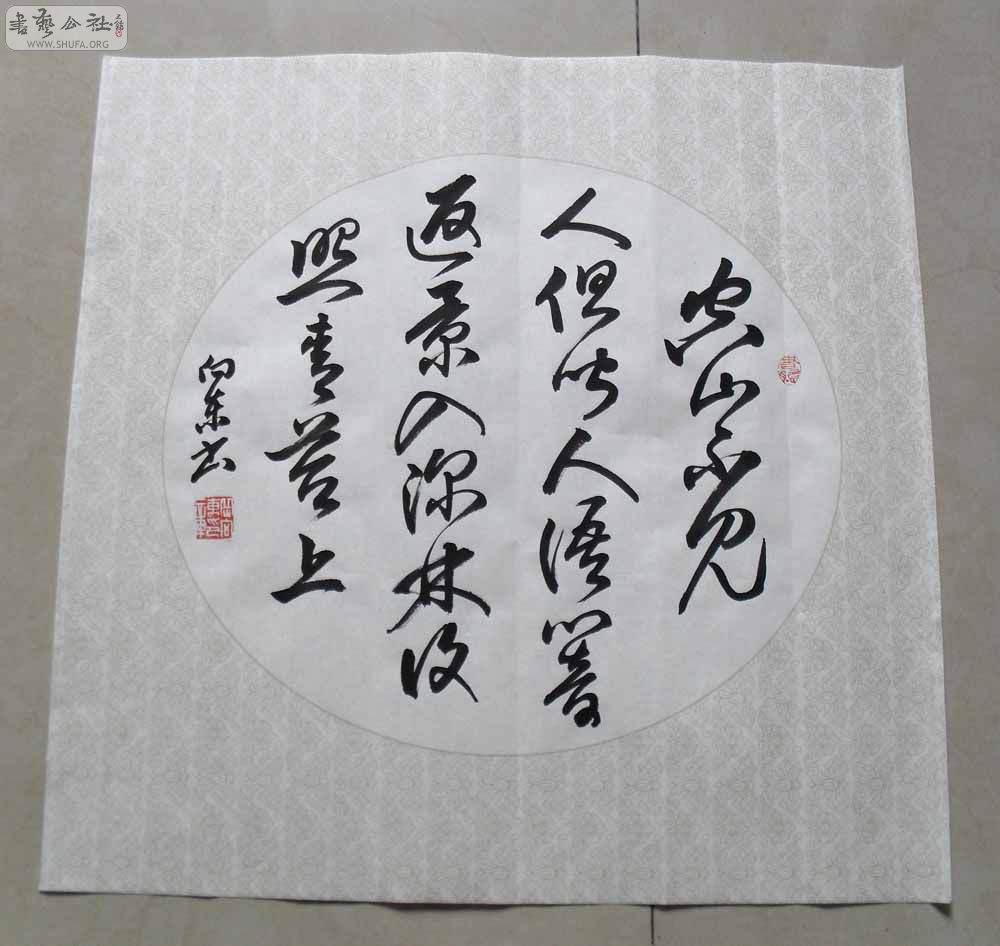 空山不見
人但聞人語響
返景入深林復
照青苔上
向東書
書藝公社
WWW.SHUFA.ORG